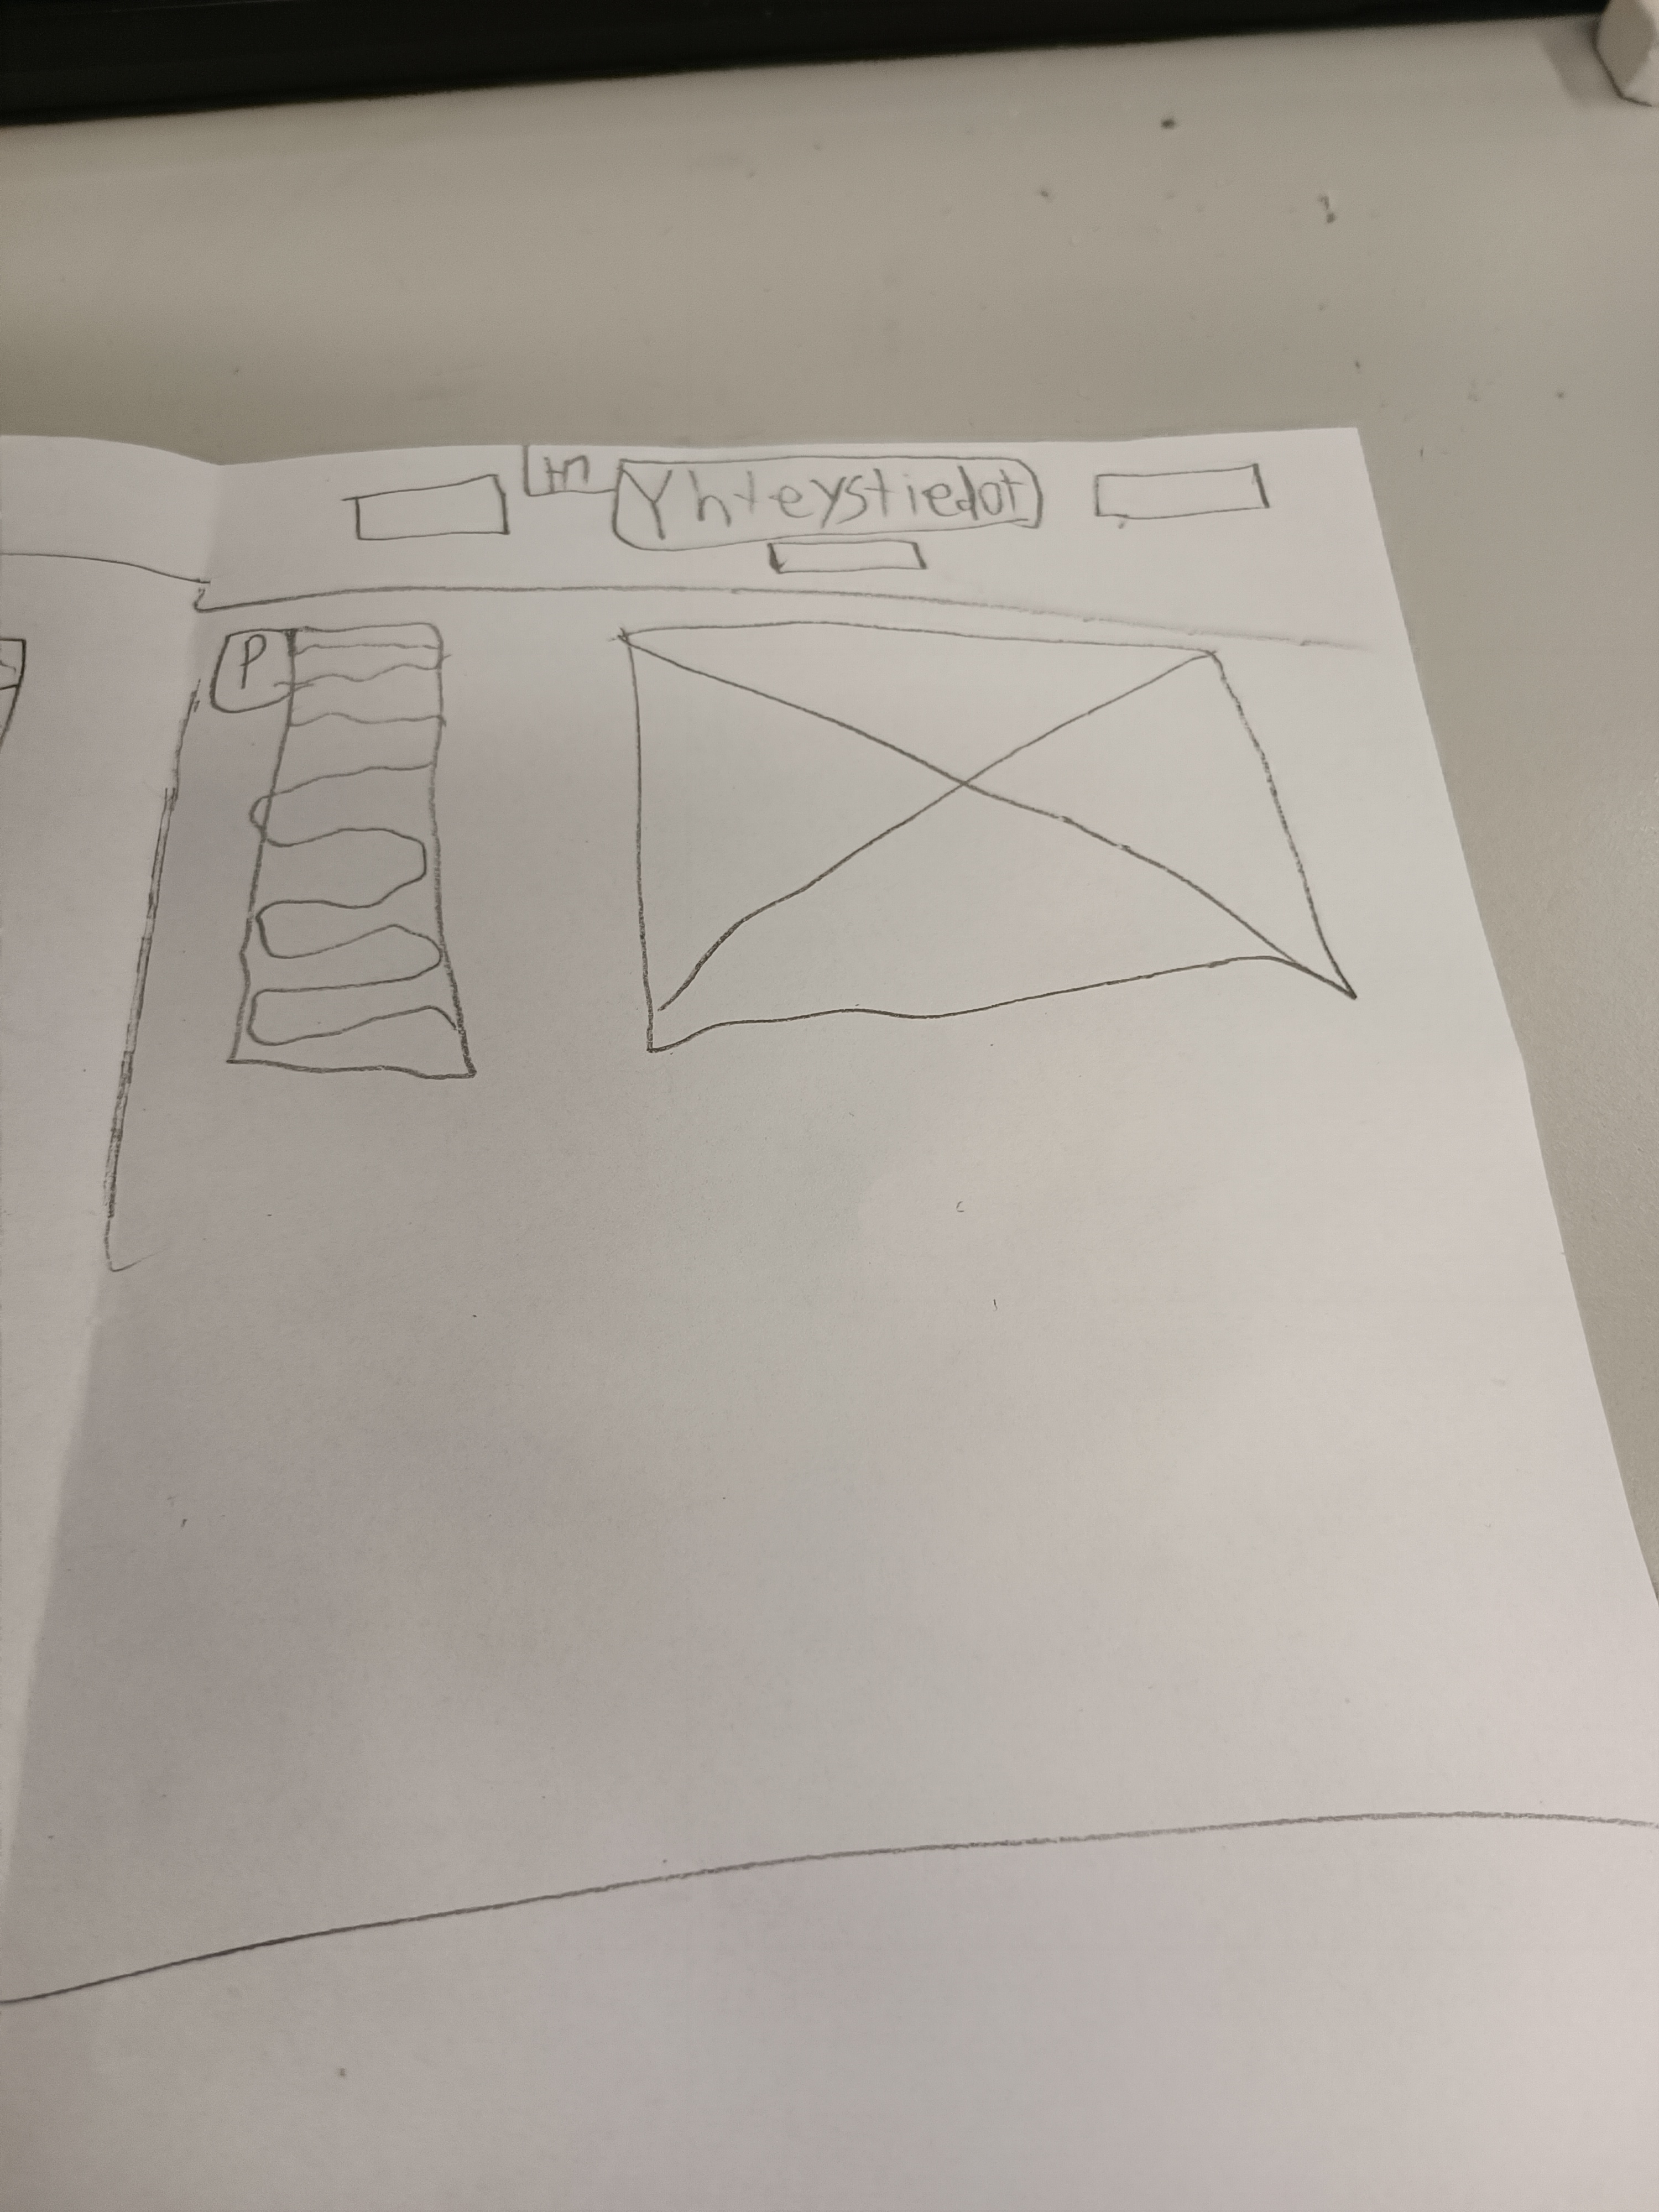 H1
Yhteystiedot
P